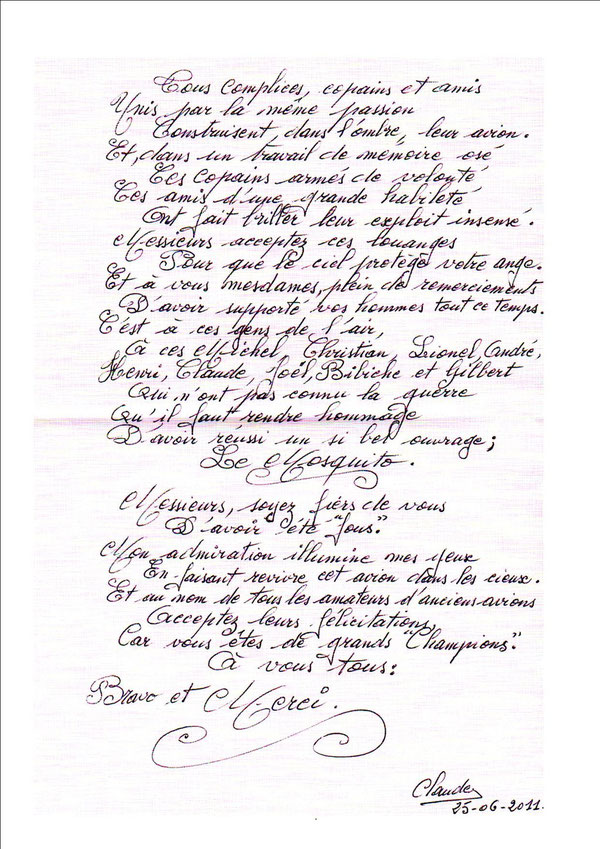 Tous complices, copains et amis
Unis par la même passion
Construisent, dans l'ombre, leur avion.
Et, dans un travail de mémoire osé
Ces copains armés de volonté
Ces amis d'une grande habileté
Ont fait briller leur exploit insensé.
Messieurs acceptez ces louanges
Pour que le ciel protège votre ange.
Et à vous mesdames, plein de remerciements
D'avoir supporté vos hommes tout ce temps.
C'est à ces gens de l'air,
À ces Michel, Christian, Lionel, André,
Henri, Claude, Joël, Bibiche et Gilbert
Qui n'ont pas connu la guerre
Qu'il faut rendre hommage
D'avoir réussi un si bel ouvrage;
Le Mosquito.
Messieurs, soyez fiers de vous
D'avoir été "fous."
Mon admiration illumine mes yeux
En faisant revivre cet avion dans les cieux.
Et au nom de tous les amateurs d'anciens avions
Acceptez leurs félicitations,
Car vous êtes de grands "Champions".
À vous tous:
Bravo et Merci.
Claude
25-06-2011.